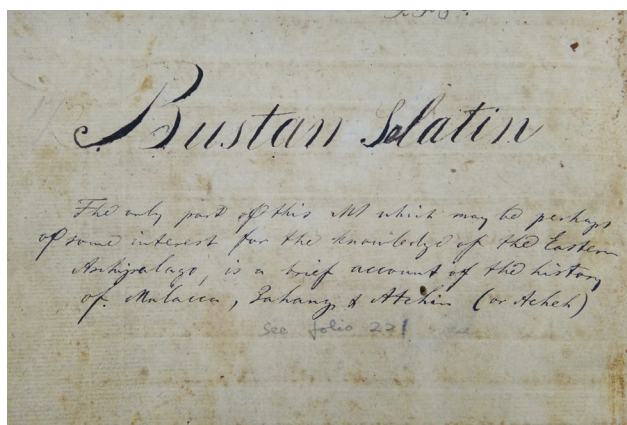 Bustan Selatin
The only part of this MS which may be perhaps
of some interest for the knowledge of the Eastern
Archipelago, is a brief account of the history
of Malacca, Pahang & Atchin (or Acheh)
See folio 221